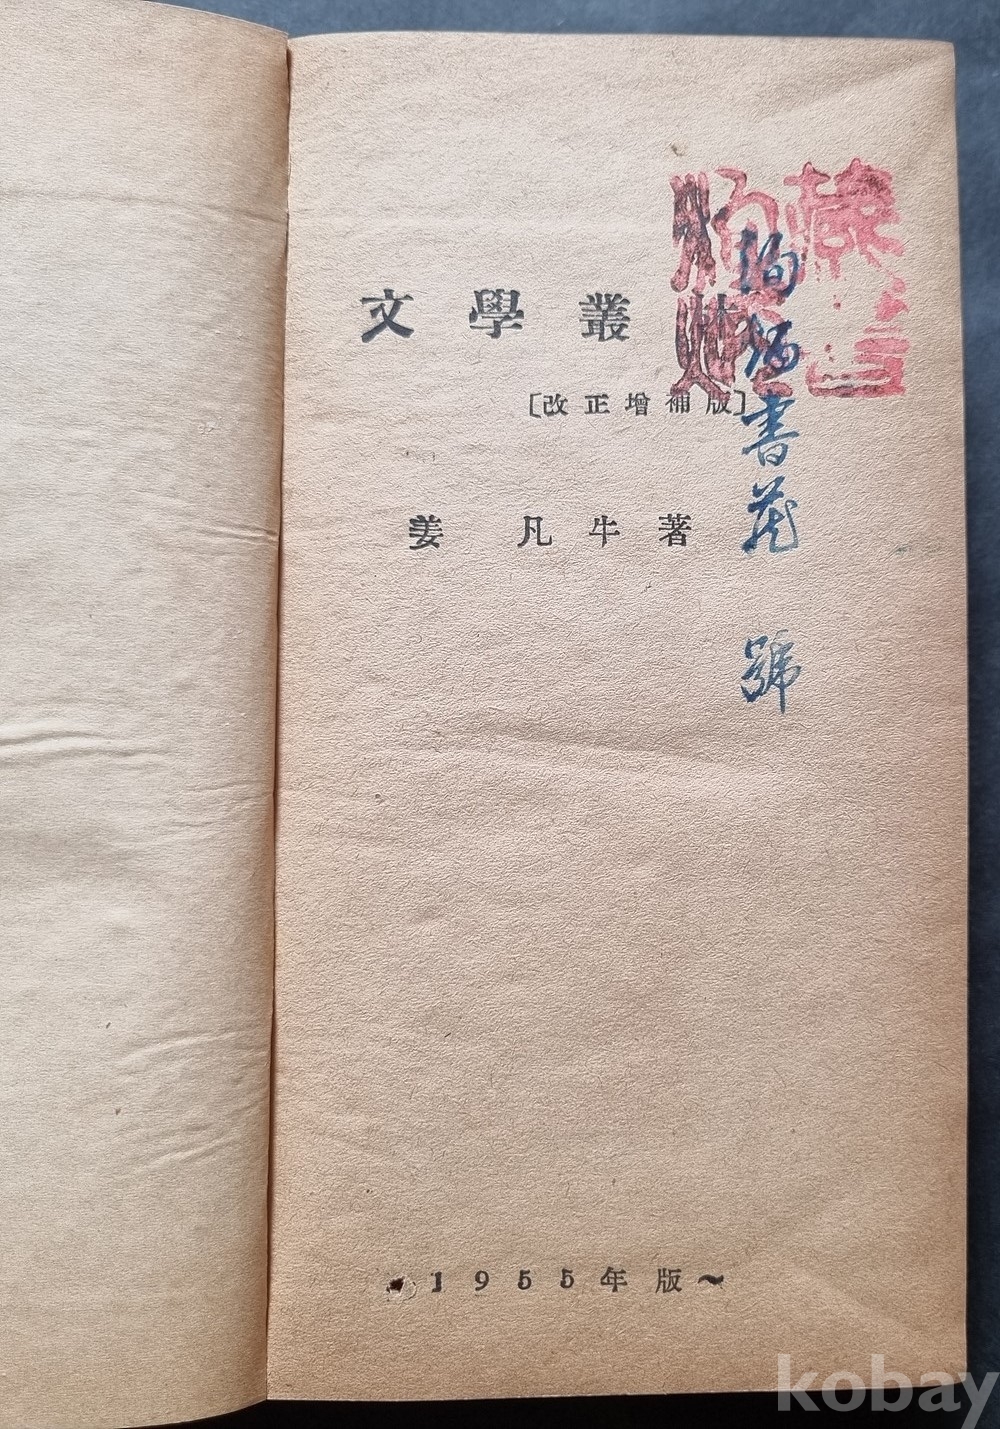 文學叢林
[改正增補版]
姜 凡牛著
書藏 號
1955年版~
kobay